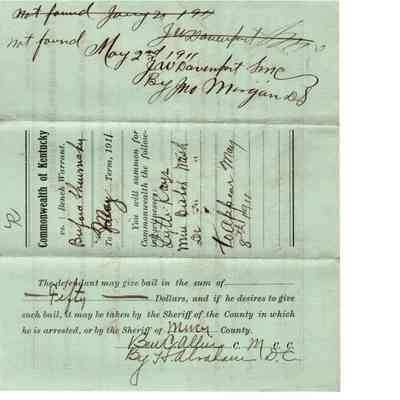 Not found
J W Davenport
Not found May 2nd 1911
J W Davenport SMC
By Jno Morgan DS
Commonwealth of Kentucky
vs. : Bench Warrant.
To May Term, 1911
You will summon for
Commonwealth the follow-
Nash
to appear May
8th 1911
The defendant may give bail in the sum of
Fifty Dollars, and if he desires to give
such bail, it may be taken by the Sheriff of the County in which
he is arrested, or by the Sheriff of Mercer County.
Ben C Allin C. M C. C.
By Abraham D.C.